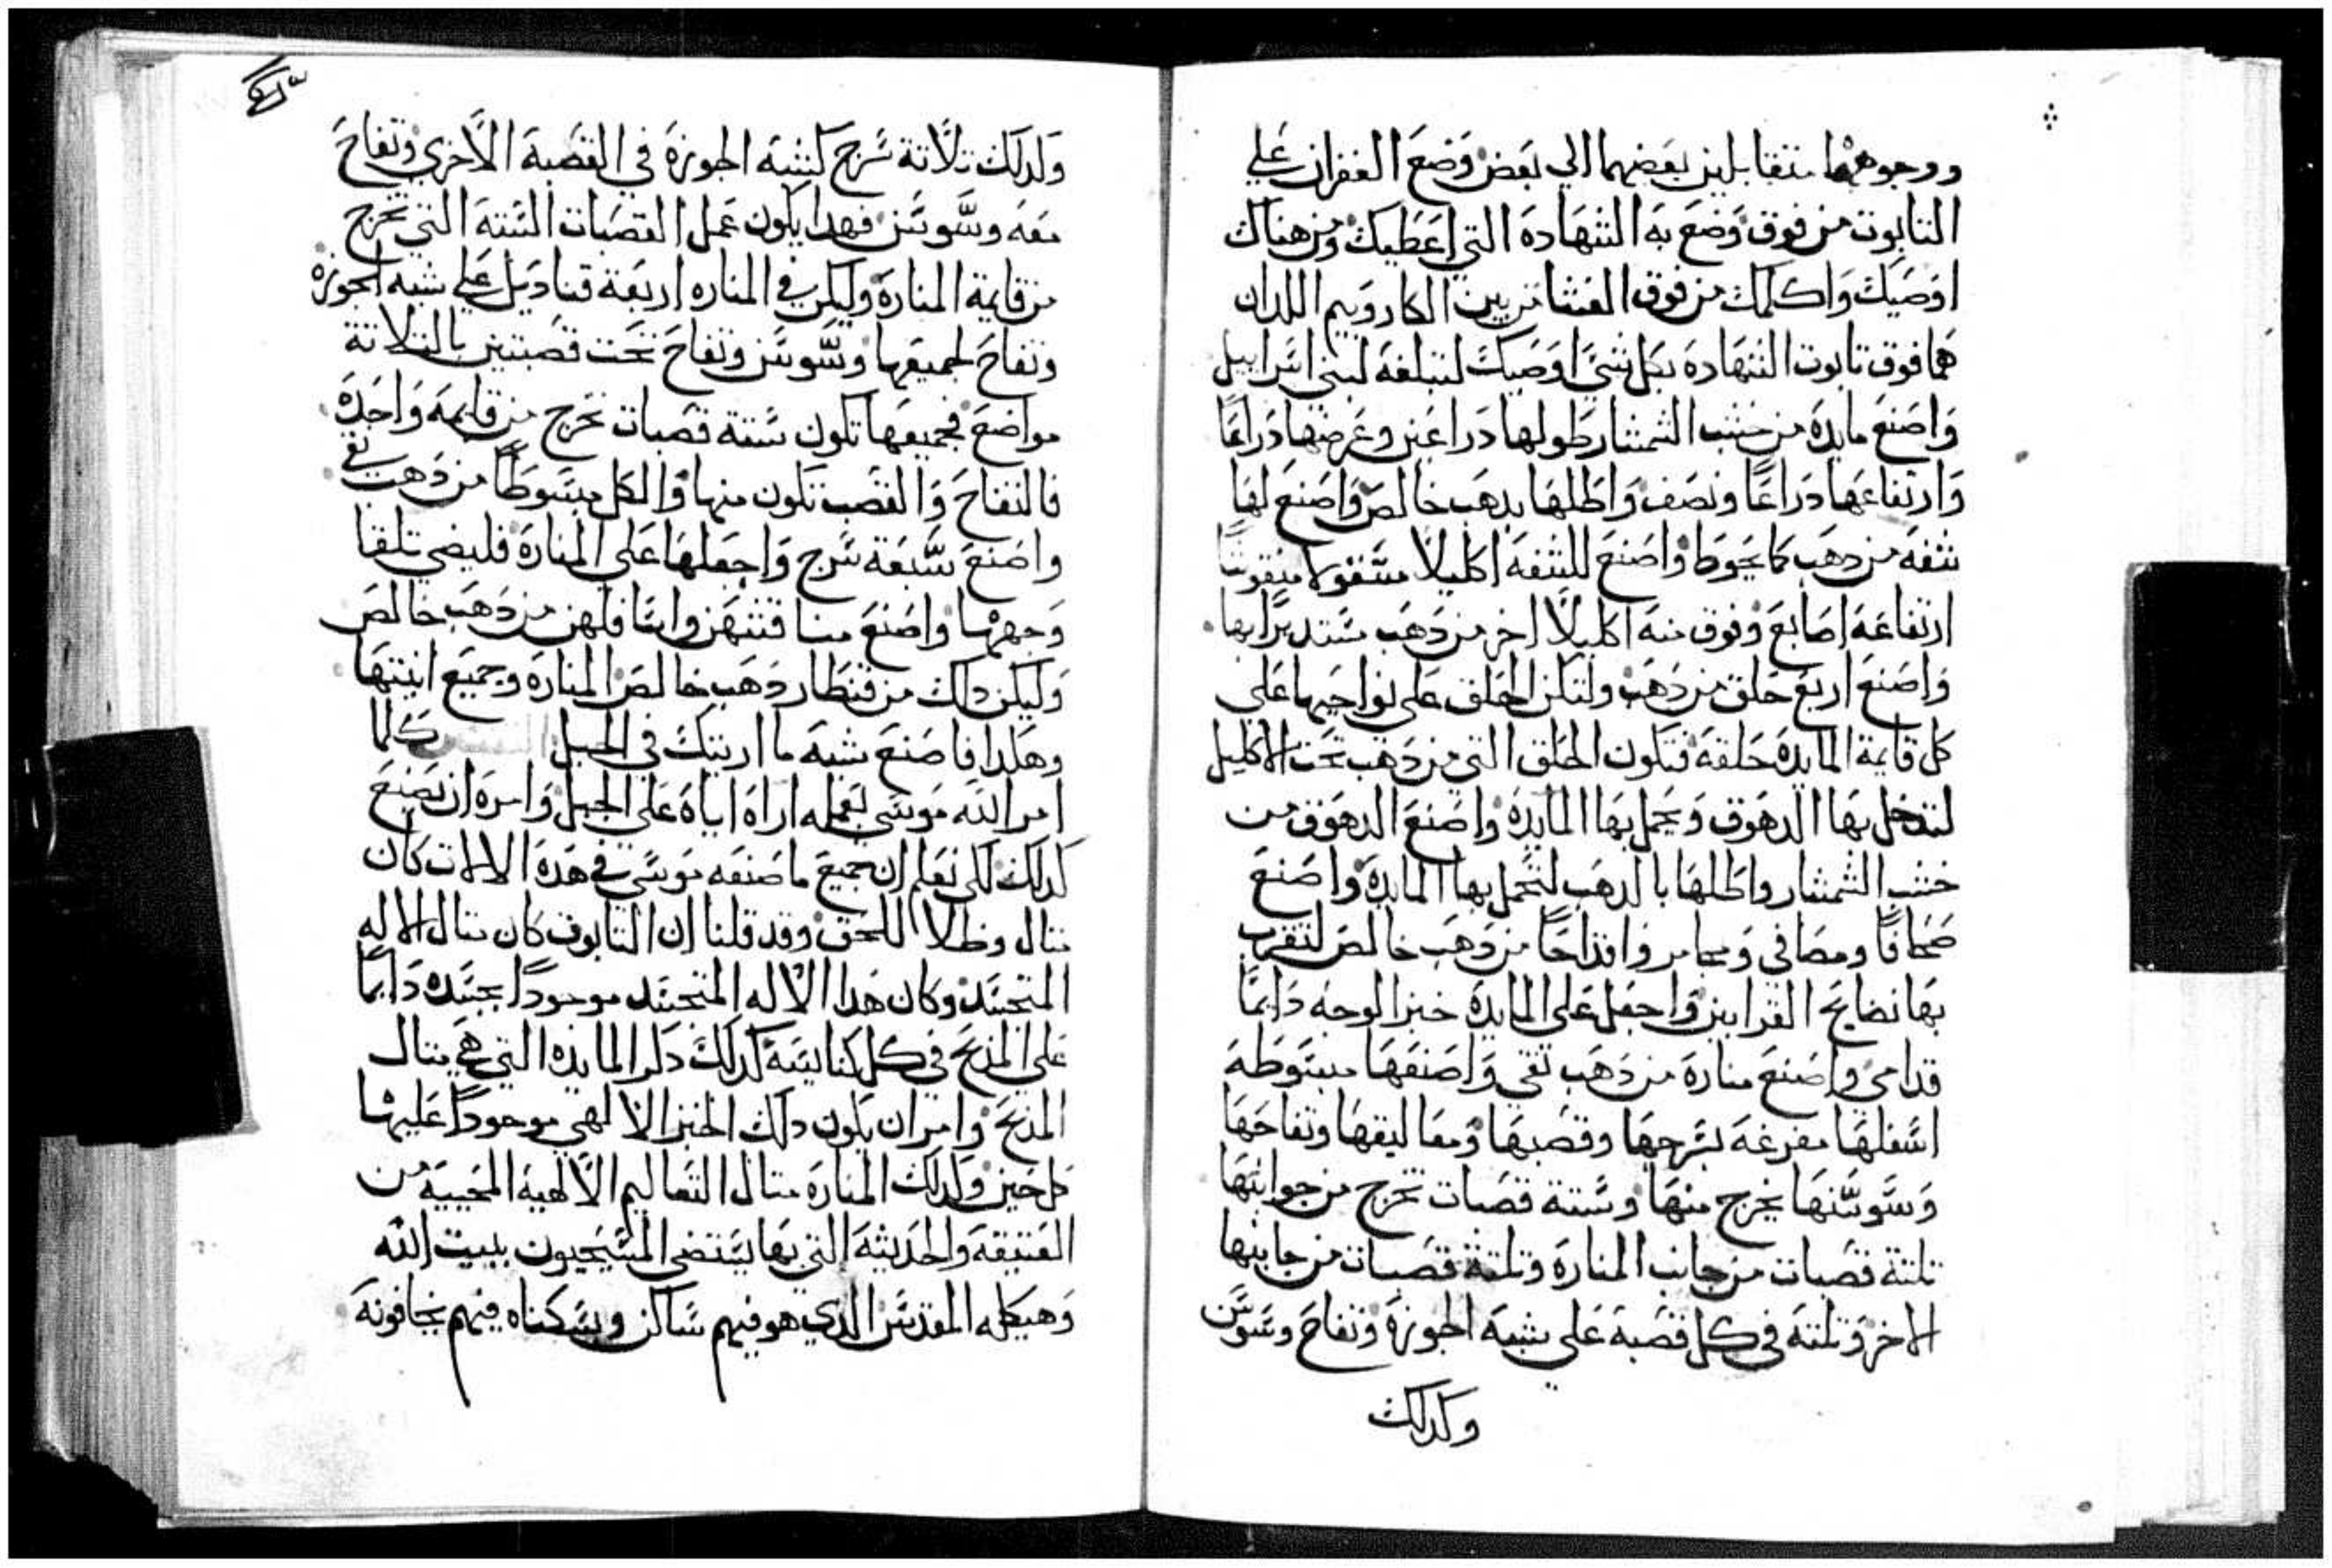 ووجوههما متقابلين بعضهما الي بعض وضع الغفران علي
التابوت من فوق وضع به الشهادة التي اعطيك ومن هناك
اوصيك واكلمك من فوق الغشا من بين الكاروبيم اللدان
هما فوق تابوت الشهادة بكل شي اوصيك لتبلغه لبني اسراييل
واصنع مايدة من خشب الشمشار طولها دراعين وعرضها دراعًا
وارتفاعها دراعًا ونصف واطلها بدهب خالص واصنع لها
شفه من دهب كما يحوط واصنع للشفه اكليلا منقوشًا
ارتفاعه اصابع وفوق منه اكليلًا اخر من دهب مستديرًا بها
واصنع اربع حلق من دهب ولتكن الحلق علي نواحيها علي
كل قايمة المايدة حلقه فتكون الحلق التي من دهب تحت الاكليل
لتدخل بها الدهوق وتحمل بها المايدة واصنع الدهوق من
خشب الشمشار واطلها بالدهب لتحمل بها المايدة واصنع
صحافًا ومصافي ومجامر واقداحًا من دهب خالص لتقرب
بها نضايح القرابين واجعل علي المايدة خبز الوجه دايمًا
قدامي واصنع منارة من دهب نقي واصنعها مبسوطه
اسفلها مفرغه بسرجها وقصبها ومعاليقها وتفاحها
وسوسنها يخرج منها وستة قصبات تخرج من جوانبها
تلتة قصبات من جانب المنارة وتلتة قصبات من جانبها
الاخر وتلته في كل قصبة علي شبه الجوزة وتفاح وسوسن
وكدلك
وكدلك تلاتة سرج كشبه الجوزة في القصبة الاخري وتفاح
معه وسوسن فهدا يكون عمل القصبات الستة التي تخرج
من قايمة المنارة وليكن في المناره اربعة قناديل علي شبه الجوزة
وتفاح لجميعها وسوسن وتفاح تحت قصبتين بالتلاتة
مواضع فجميعها تكون ستة قصبات تخرج من قايمه واحدة
فالتفاح والقصب تكون منها والكل مبسوطًا من دهب نقي
واصنع سبعة سرج واجعلها علي المنارة فليضي تلقا
وجهها واصنع من دهب خالص
وليكن داك من قنطار دهب خالص المنارة وجميع انيتها
وهكدا فاصنع شبه ما اريتك في الجبل كلما
امر الله موسي بعمله اراه اياه علي الجبل وامره ان يصنع
كدلك لكي نعلم ان جميع ما صنعه موسي في هده الالات كان
متال وظلا للحق وقد قلنا ان التابوت كان متال الاله
المتجسد وكان هدا الاله المتجسد موجودًا بجسده دايمًا
علي المدبح في كل كنايسه كدلك دكر المايده التي هي متال
المدبح وامر ان يكون دلك الخبز الالهي موجودًا عليها
كل حين وكدلك المنارة متال التعاليم الالهية المحييه من
العتيقه والحديثه التي بها يستضي المسيحيون ببيت الله
وهيكله المقدس الدي هو فيهم ساكن وسكناه فيهم يخافونه